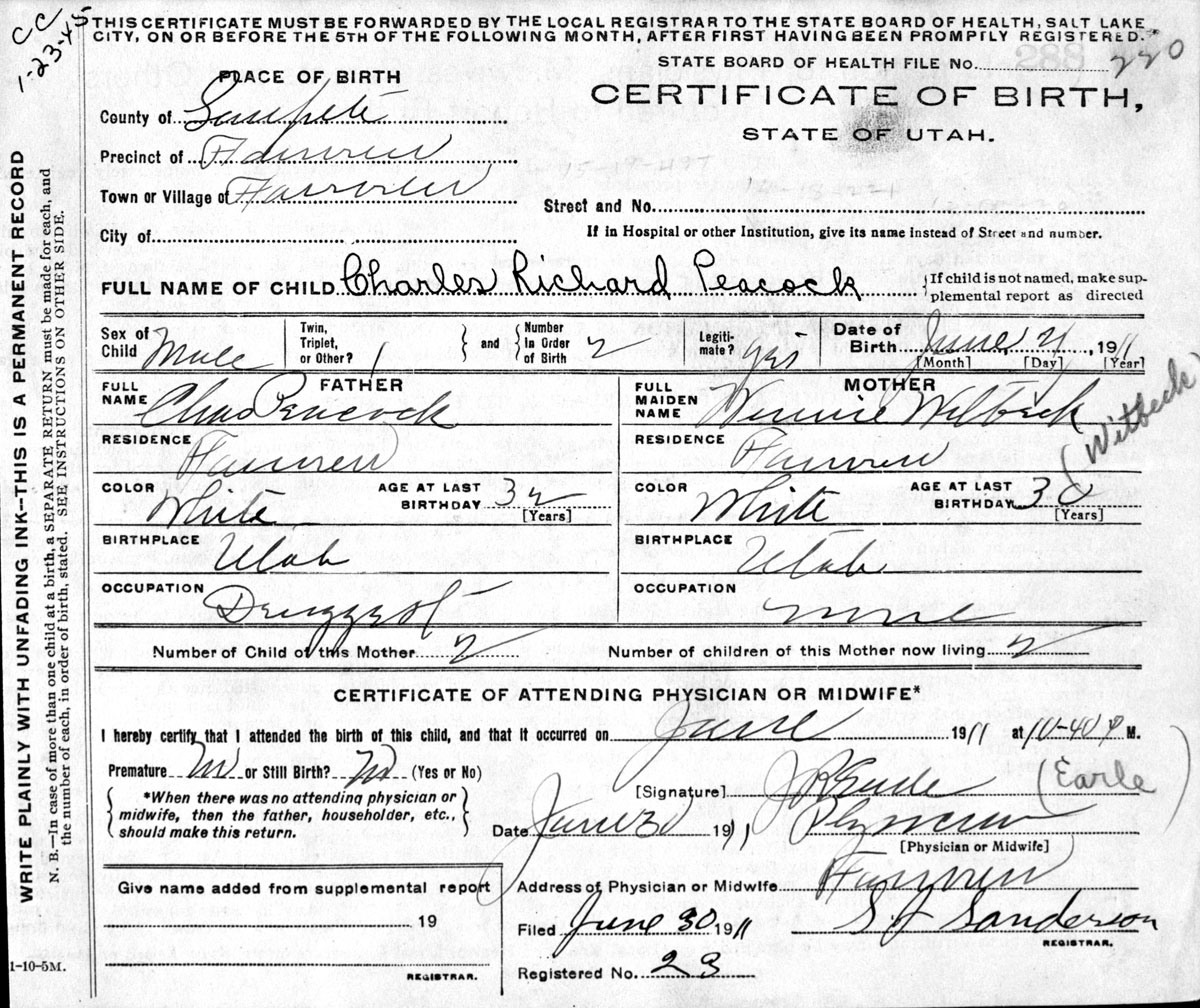 CC
1-23-45
THIS CERTIFICATE MUST BE FORWARDED BY THE LOCAL REGISTRAR TO THE STATE BOARD OF HEALTH, SALT LAKE
CITY, ON OR BEFORE THE 5TH OF THE FOLLOWING MONTH, AFTER FIRST HAVING BEEN PROMPTLY REGISTERED.*
STATE BOARD OF HEALTH FILE No. 220
PLACE OF BIRTH
CERTIFICATE OF BIRTH,
STATE OF UTAH.
County of Sanpete
Precinct of Fairview
Town or Village of Fairview
Street and No.
City of
If in Hospital or other Institution, give its name instead of Street and number.
FULL NAME OF CHILD Charles Richard Peacock {If child is not named, make sup-
plemental report as directed
Sex of Child Male Twin, Triplet, or Other? 1 } and { Number In Order of Birth 2 Legiti-mate? yes Date of Birth June 21, 1911
[Month] [Day] [Year]
FATHER
FULL NAME Chas Peacock
MOTHER
FULL MAIDEN NAME Winnie Wilbeck
(Witbeck)
RESIDENCE Fairview
RESIDENCE Fairview
COLOR White AGE AT LAST BIRTHDAY 32 [Years]
COLOR White AGE AT LAST BIRTHDAY 30 [Years]
BIRTHPLACE Utah
BIRTHPLACE Utah
OCCUPATION Druggest
OCCUPATION none
Number of Child of this Mother 2 Number of children of this Mother now living 2
CERTIFICATE OF ATTENDING PHYSICIAN OR MIDWIFE*
I hereby certify that I attended the birth of this child, and that it occurred on June 1911 at 10-40 P M.
Premature No or Still Birth? No (Yes or No)
[Signature] (Earle)
{ *When there was no attending physician or midwife, then the father, householder, etc., should make this return. }
Date June 30 1911 Physician
[Physician or Midwife]
Give name added from supplemental report
Address of Physician or Midwife Fairview
19
Filed June 30 1911 S J Sanderson
REGISTRAR.
Registered No. 23
REGISTRAR.
1-10-5M.
WRITE PLAINLY WITH UNFADING INK—THIS IS A PERMANENT RECORD
N. B.—In case of more than one child at a birth, a SEPARATE RETURN must be made for each, and
the number of each, in order of birth, stated. SEE INSTRUCTIONS ON OTHER SIDE.